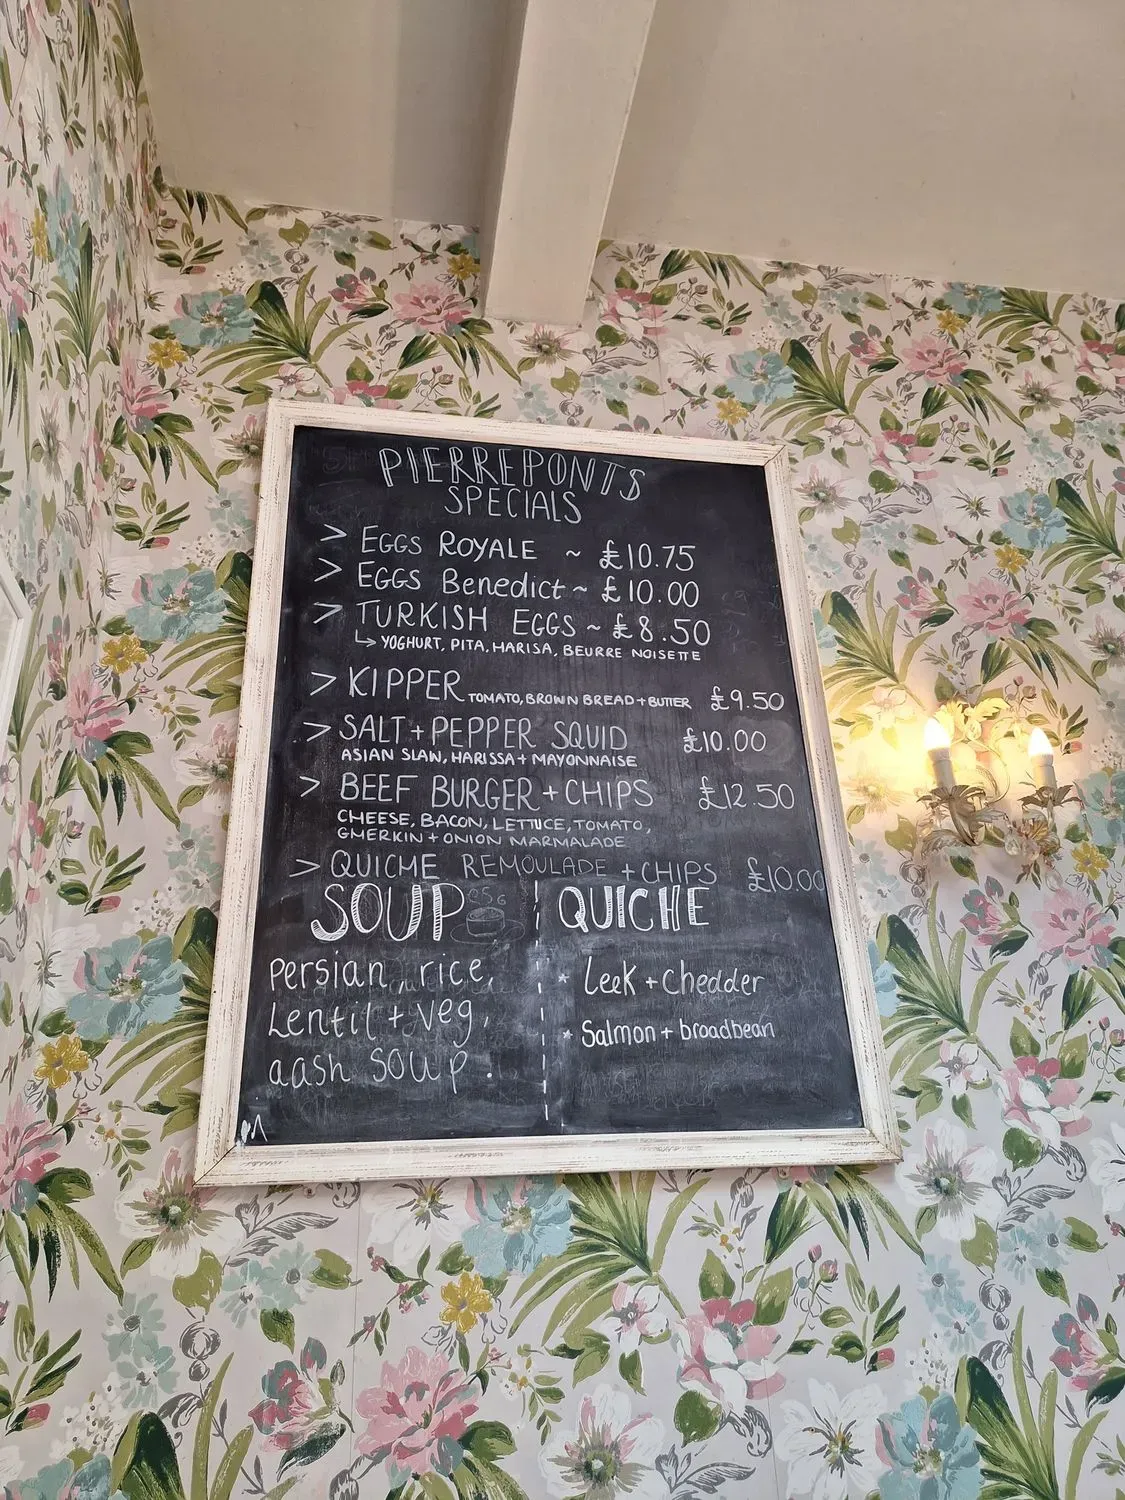 PIERREPONTS
SPECIALS
> EGGS ROYALE ~ £10.75
> EGGS Benedict ~ £10.00
> TURKISH EGGS ~ £8.50
↳ YOGHURT, PITA, HARISA, BEURRE NOISETTE
> KIPPER TOMATO, BROWN BREAD + BUTTER £9.50
> SALT + PEPPER SQUID £10.00
ASIAN SLAW, HARISSA + MAYONNAISE
> BEEF BURGER + CHIPS £12.50
CHEESE, BACON, LETTUCE, TOMATO,
GHERKIN + ONION MARMALADE
> QUICHE REMOULADE + CHIPS £10.00
SOUP
Persian, rice,
Lentil + veg,
aash soup.
QUICHE
* Leek + Chedder
* Salmon + broadbean